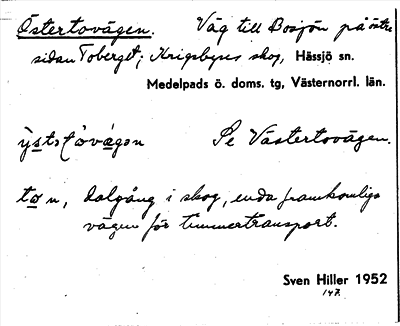 Östertovägen. Väg till Bosjön på östra
sidan Toberget; Krigsbyns skog, Hässjö sn.
Medelpads ö. doms. tg, Västernorrl. län.
ỳstətòvägən Se Västertovägen.
tɷn, dalgång i skog, enda framkomliga
vägen för timmertransport.
Sven Hiller 1952
147.